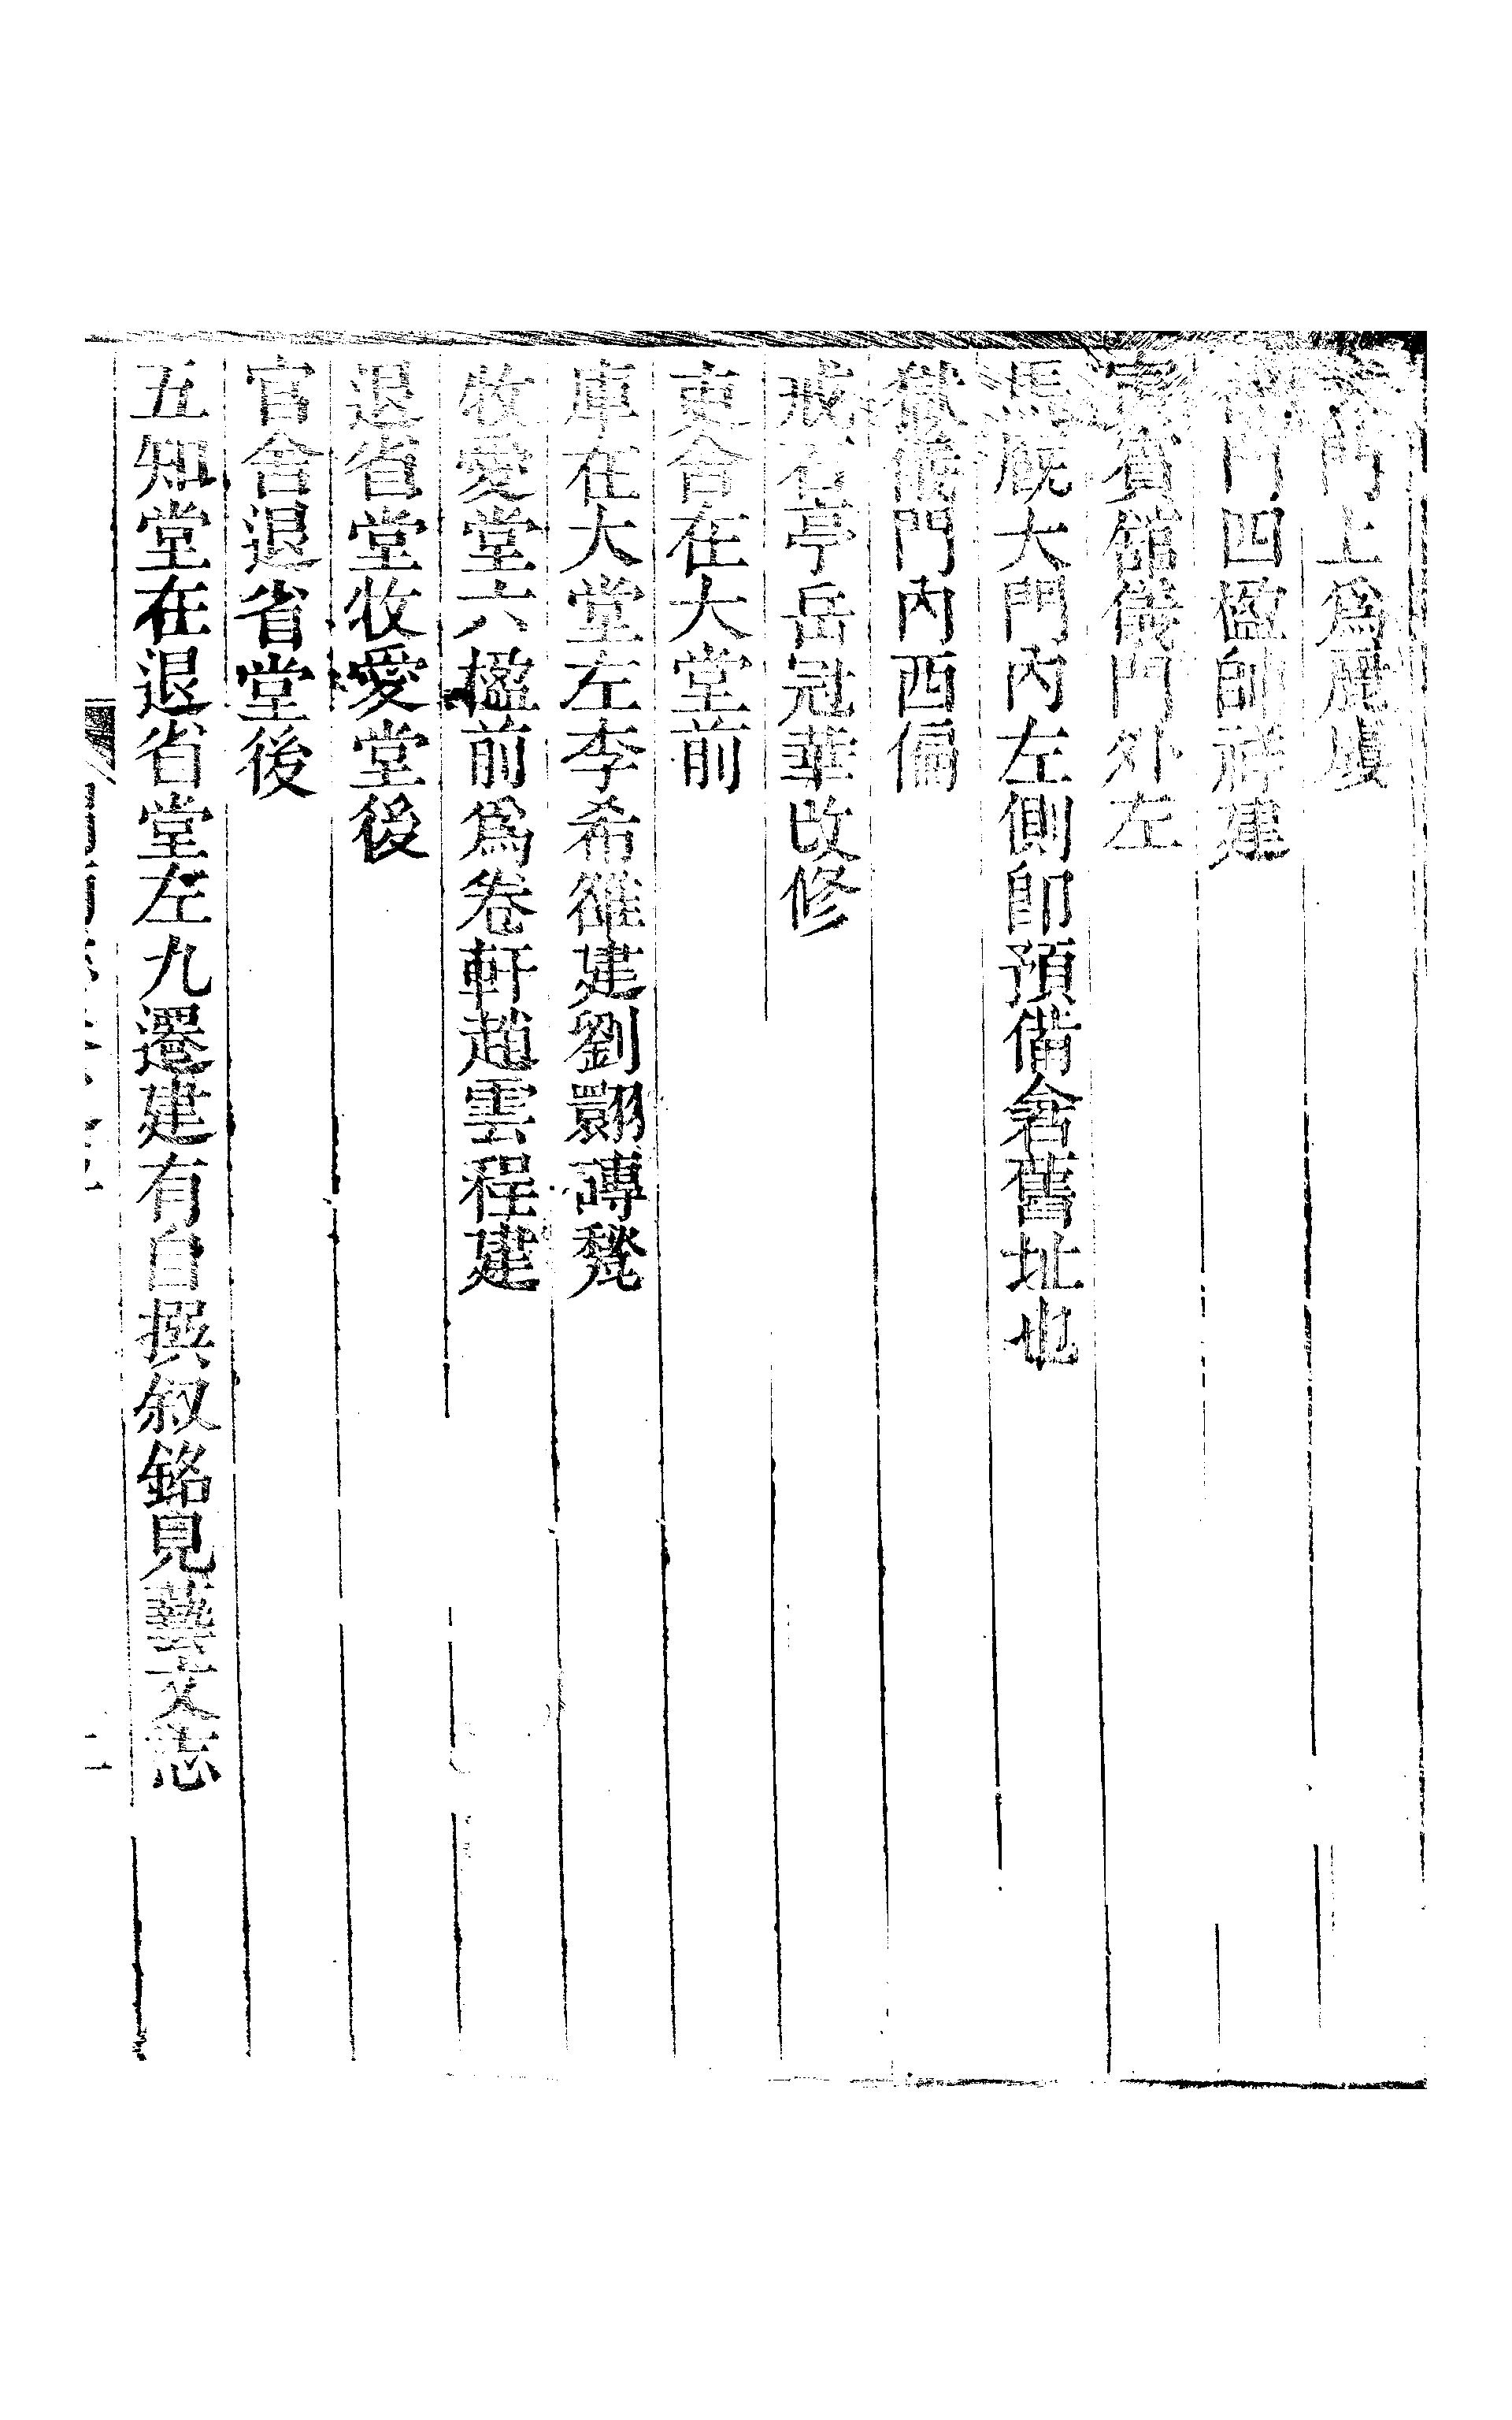 大門上爲麗樓
儀門四楹帥祥建
寅賓館儀門外左
馬廐大門內左側即預備倉舊址也
獄儀門內西偏
戒石亭岳冠華改修
吏舍在大堂前
庫在大堂左李希雒建劉翾磚甃
牧愛堂六楹前爲卷軒趙雲程建
退省堂牧愛堂後
官舍退省堂後
五知堂在退省堂左九遷建有自撰叙銘見藝文志
二